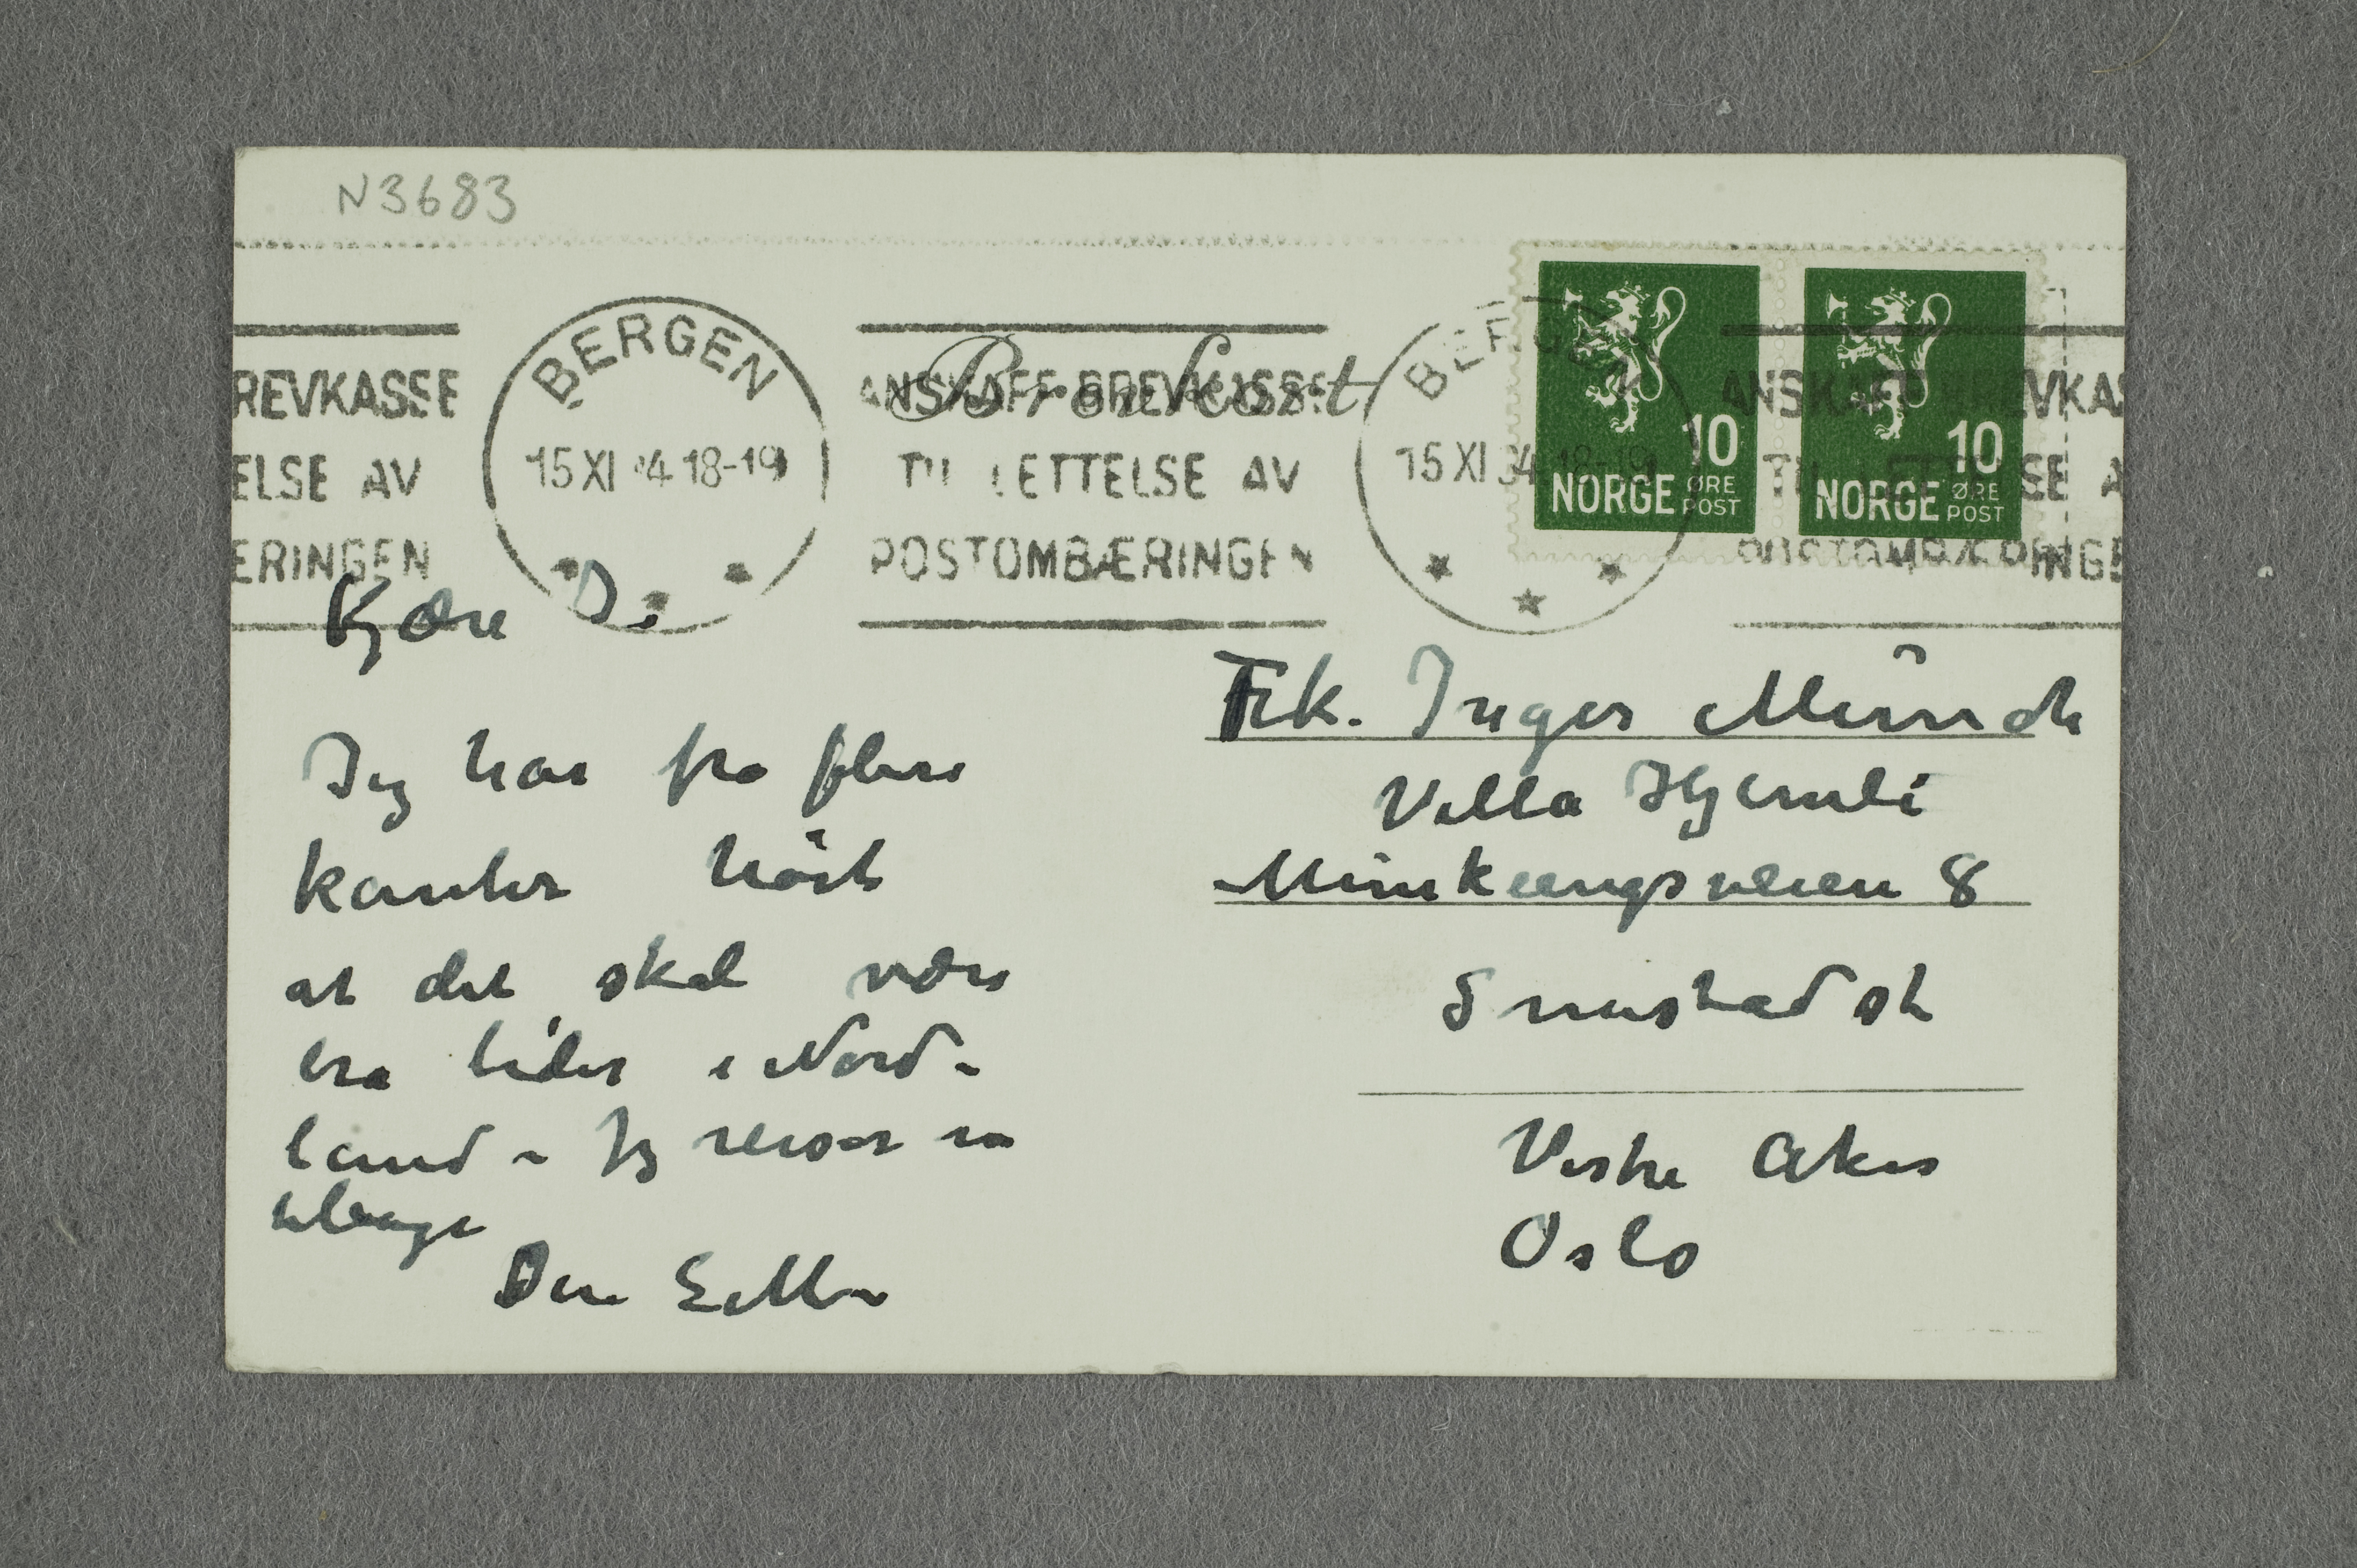 N3683
REVKASSE
ELSE AV
ERINGEN
BERGEN
15 XI 34 18-19
Brevkort
ANSKAFF BREVKASSE
TIL LETTELSE AV
POSTOMBÆRINGEN
BERGEN
15 XI 34 18-19
10
NORGE ØRE
POST
10
NORGE ØRE
POST
ANSKAFF BREVKAS
TIL LETTELSE A
POSTOMBÆRINGE
Kjære I.
Jeg har fra flere
kanter hört
at det skal være
bra tider i Nord-
land – Jeg reiser nu
tilbage
Din EMM
Frk. Inger Münch
Villa Hjemli
Munkeengsveien 8
Smestad st
Vestre Aker
Oslo